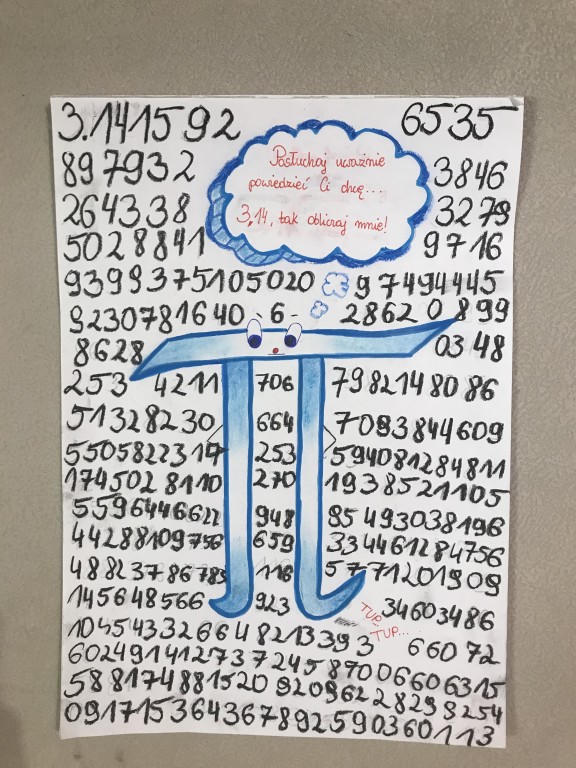 3.141592 6535
897932 3846
264338 3279
5028841 9716
Posłuchaj uważnie
powiedzieć Ci chcę...
3,14, tak obliczaj mnie!
9399375105020 97494445
9230781640 6 28620899
8628 0348
253 4211 706 7982148086
51328230 664 7093844609
5505822317 253 594081284811
1745028110 270 1938521105
5596446622 948 85493038196
44288109756 659 334461284756
48823786783 116 5771201909
145648566 923 34603486
TUP..
TUP...
10454332664821339 3 66072
60249141273724587006606315
58817488152092096228298254
091715364367892590360113